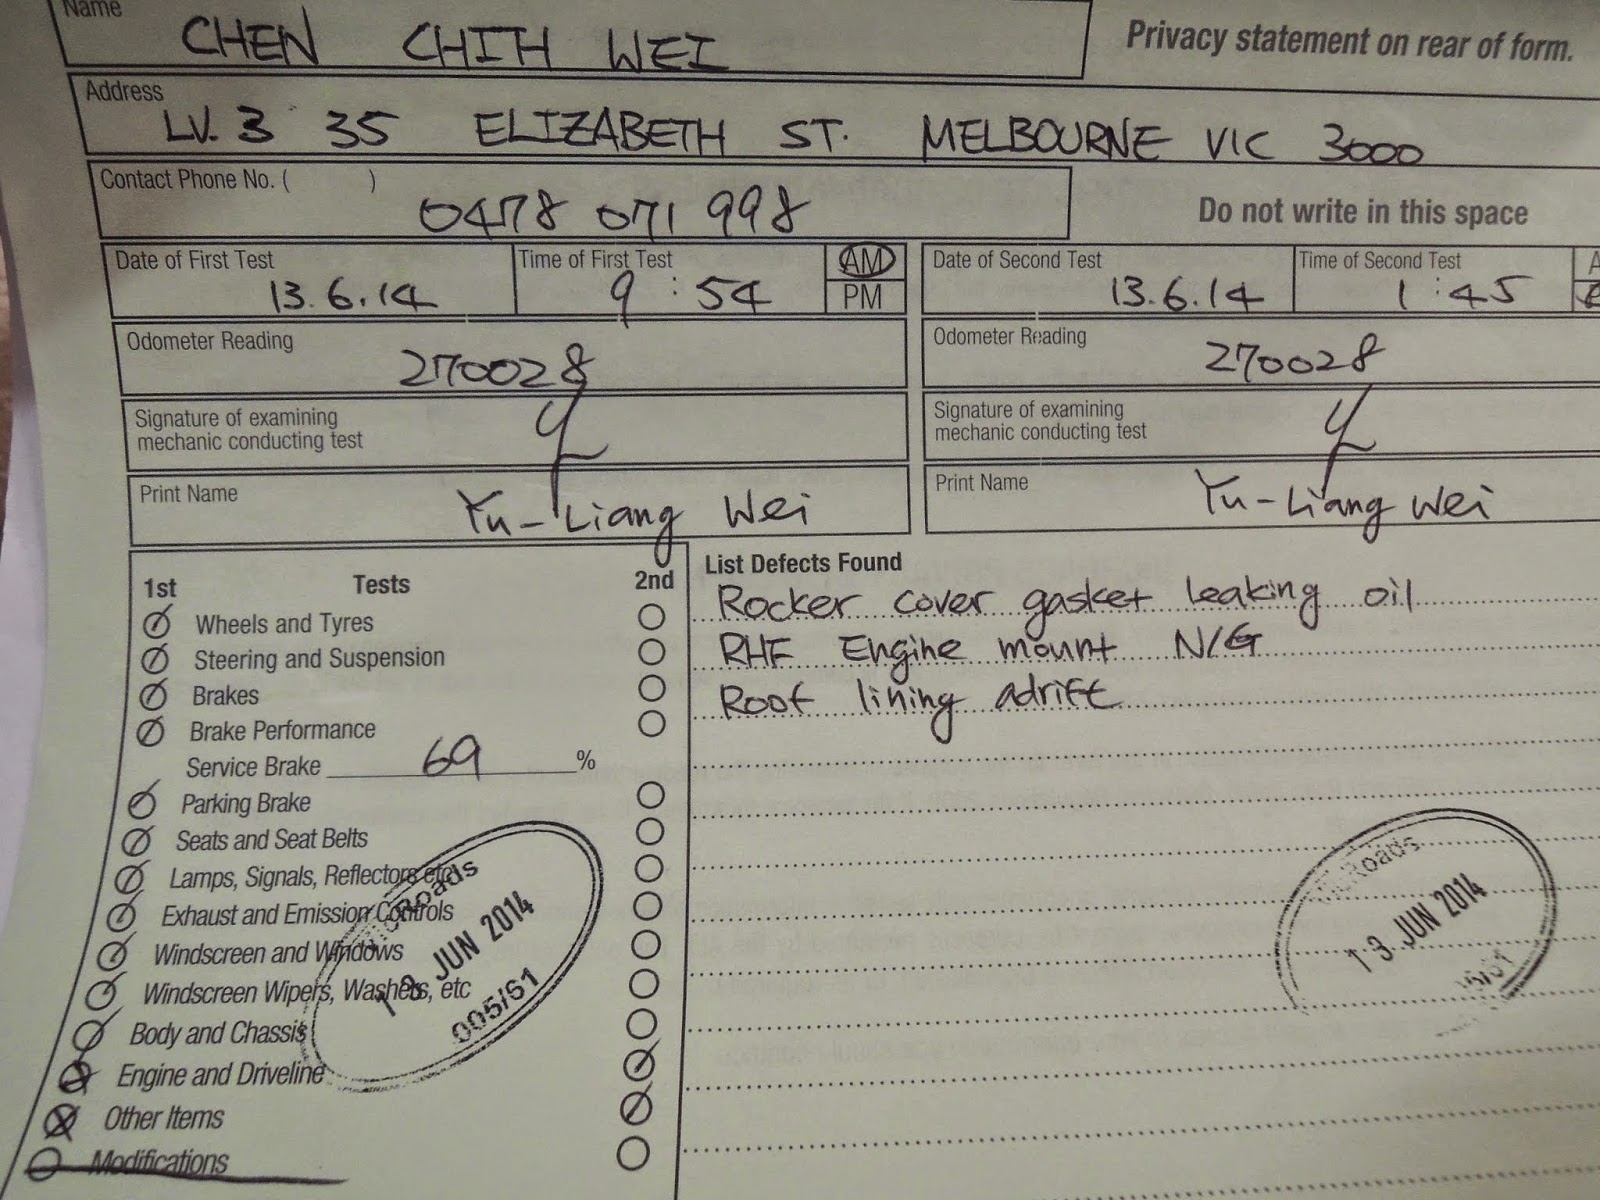 Name
CHEN CHIH WEI
Privacy statement on rear of form.
Address
LV. 3 35 ELIZABETH ST. MELBOURNE VIC 3000
Contact Phone No. ( )
0478 071 998
Do not write in this space
Date of First Test
13.6.14
Time of First Test
9 : 54
AM
PM
Date of Second Test
13.6.14
Time of Second Test
1 : 45
Odometer Reading
270028
Odometer Reading
270028
Signature of examining
mechanic conducting test
Signature of examining
mechanic conducting test
Print Name
Yu-Liang Wei
Print Name
Yu-Liang Wei
1st Tests 2nd
Wheels and Tyres
Steering and Suspension
Brakes
Brake Performance
Service Brake 69 %
Parking Brake
Seats and Seat Belts
Lamps, Signals, Reflectors etc
Exhaust and Emission Controls
Windscreen and Windows
Windscreen Wipers, Washers, etc
Body and Chassis
Engine and Driveline
Other Items
Modifications
List Defects Found
Rocker cover gasket leaking oil
RHF Engine mount N/G
Roof lining adrift
VicRoads
13 JUN 2014
005/61
VicRoads
13 JUN 2014